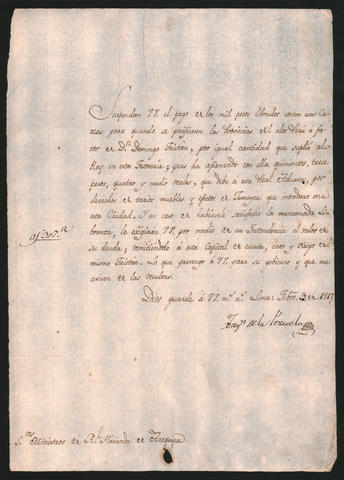 Suspendan VV. el pago de los mil pesos librados contra esas Ca-
xas para quando se pacifiquen las Provincias del alto Perú a fa-
vor de Dn. Domingo Tristan, por igual cantidad que suplió al
Rey en esta Tesorería; pues ha afianzado con ella quinientos, trece
pesos, quatro y medio reales, que debe a esta Real Aduana, por
derechos de varios muebles y efectos de que introduxo en
esta Ciudad. Y en caso de haberse satisfecho la mencionada Li-
branza, le exigirán VV. por medio de su Intendencia el valor de
su deuda, remitiéndolo a esta Capital de cuenta, costo y riesgo del
mismo Tristan. Lo que prevengo a VV. para su gobierno y que me
avisen de las resultas.
Dios guarde a VV. ms. as. Lima: Febo. 3 de 1817
Joaqn. de la Pezuela
Sres. Ministros de Rl. Hacienda de Arequipa